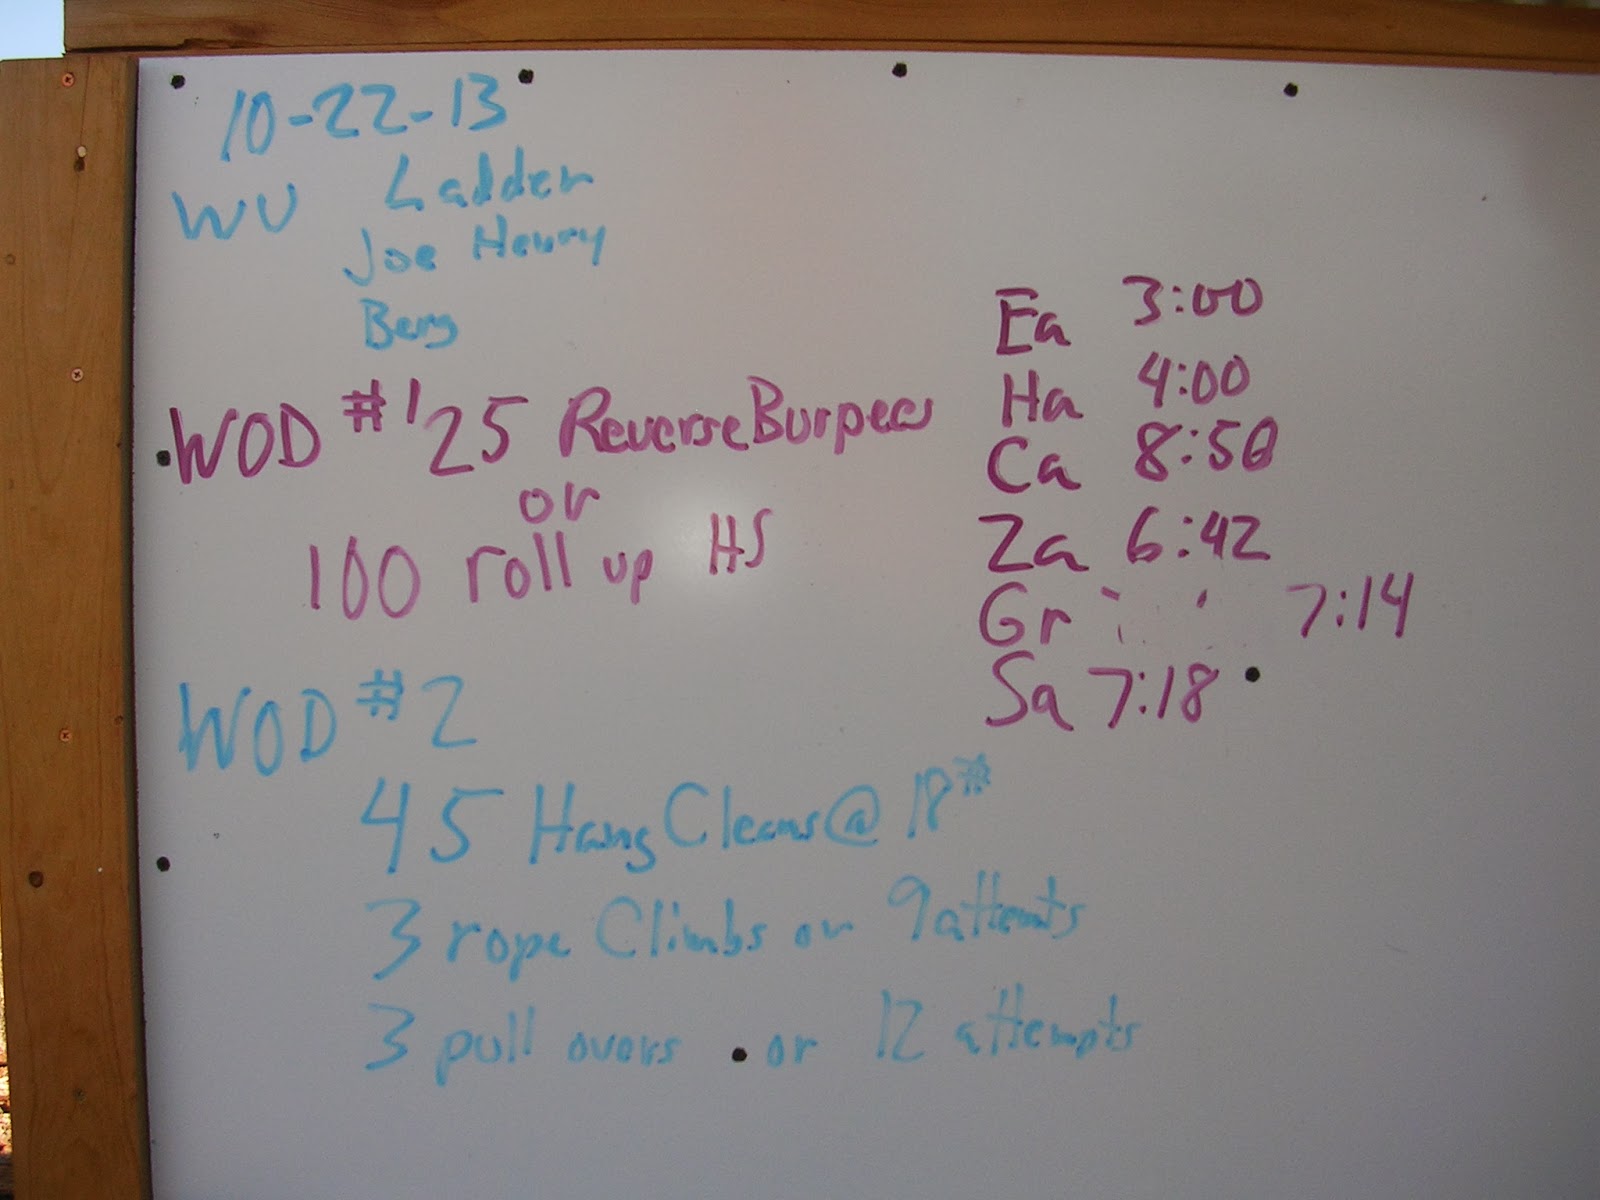 10-22-13
WU Ladder
Joe Henry
Berg
WOD #1 25 Reverse Burpees
or
100 roll up HS
Ea 3:00
Ha 4:00
Ca 8:50
Za 6:42
Gr 7:14
Sa 7:18
WOD #2
45 Hang Cleans @ 18#
3 rope Climbs or 9 attempts
3 pull overs or 12 attempts